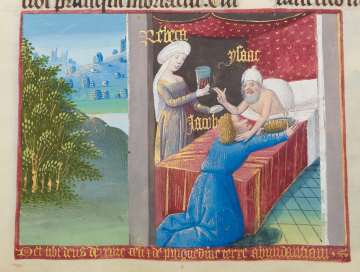 Rebeca
ysaac
Jacob
Det tibi deus de rore celi et de pinguedine terre abundantiam